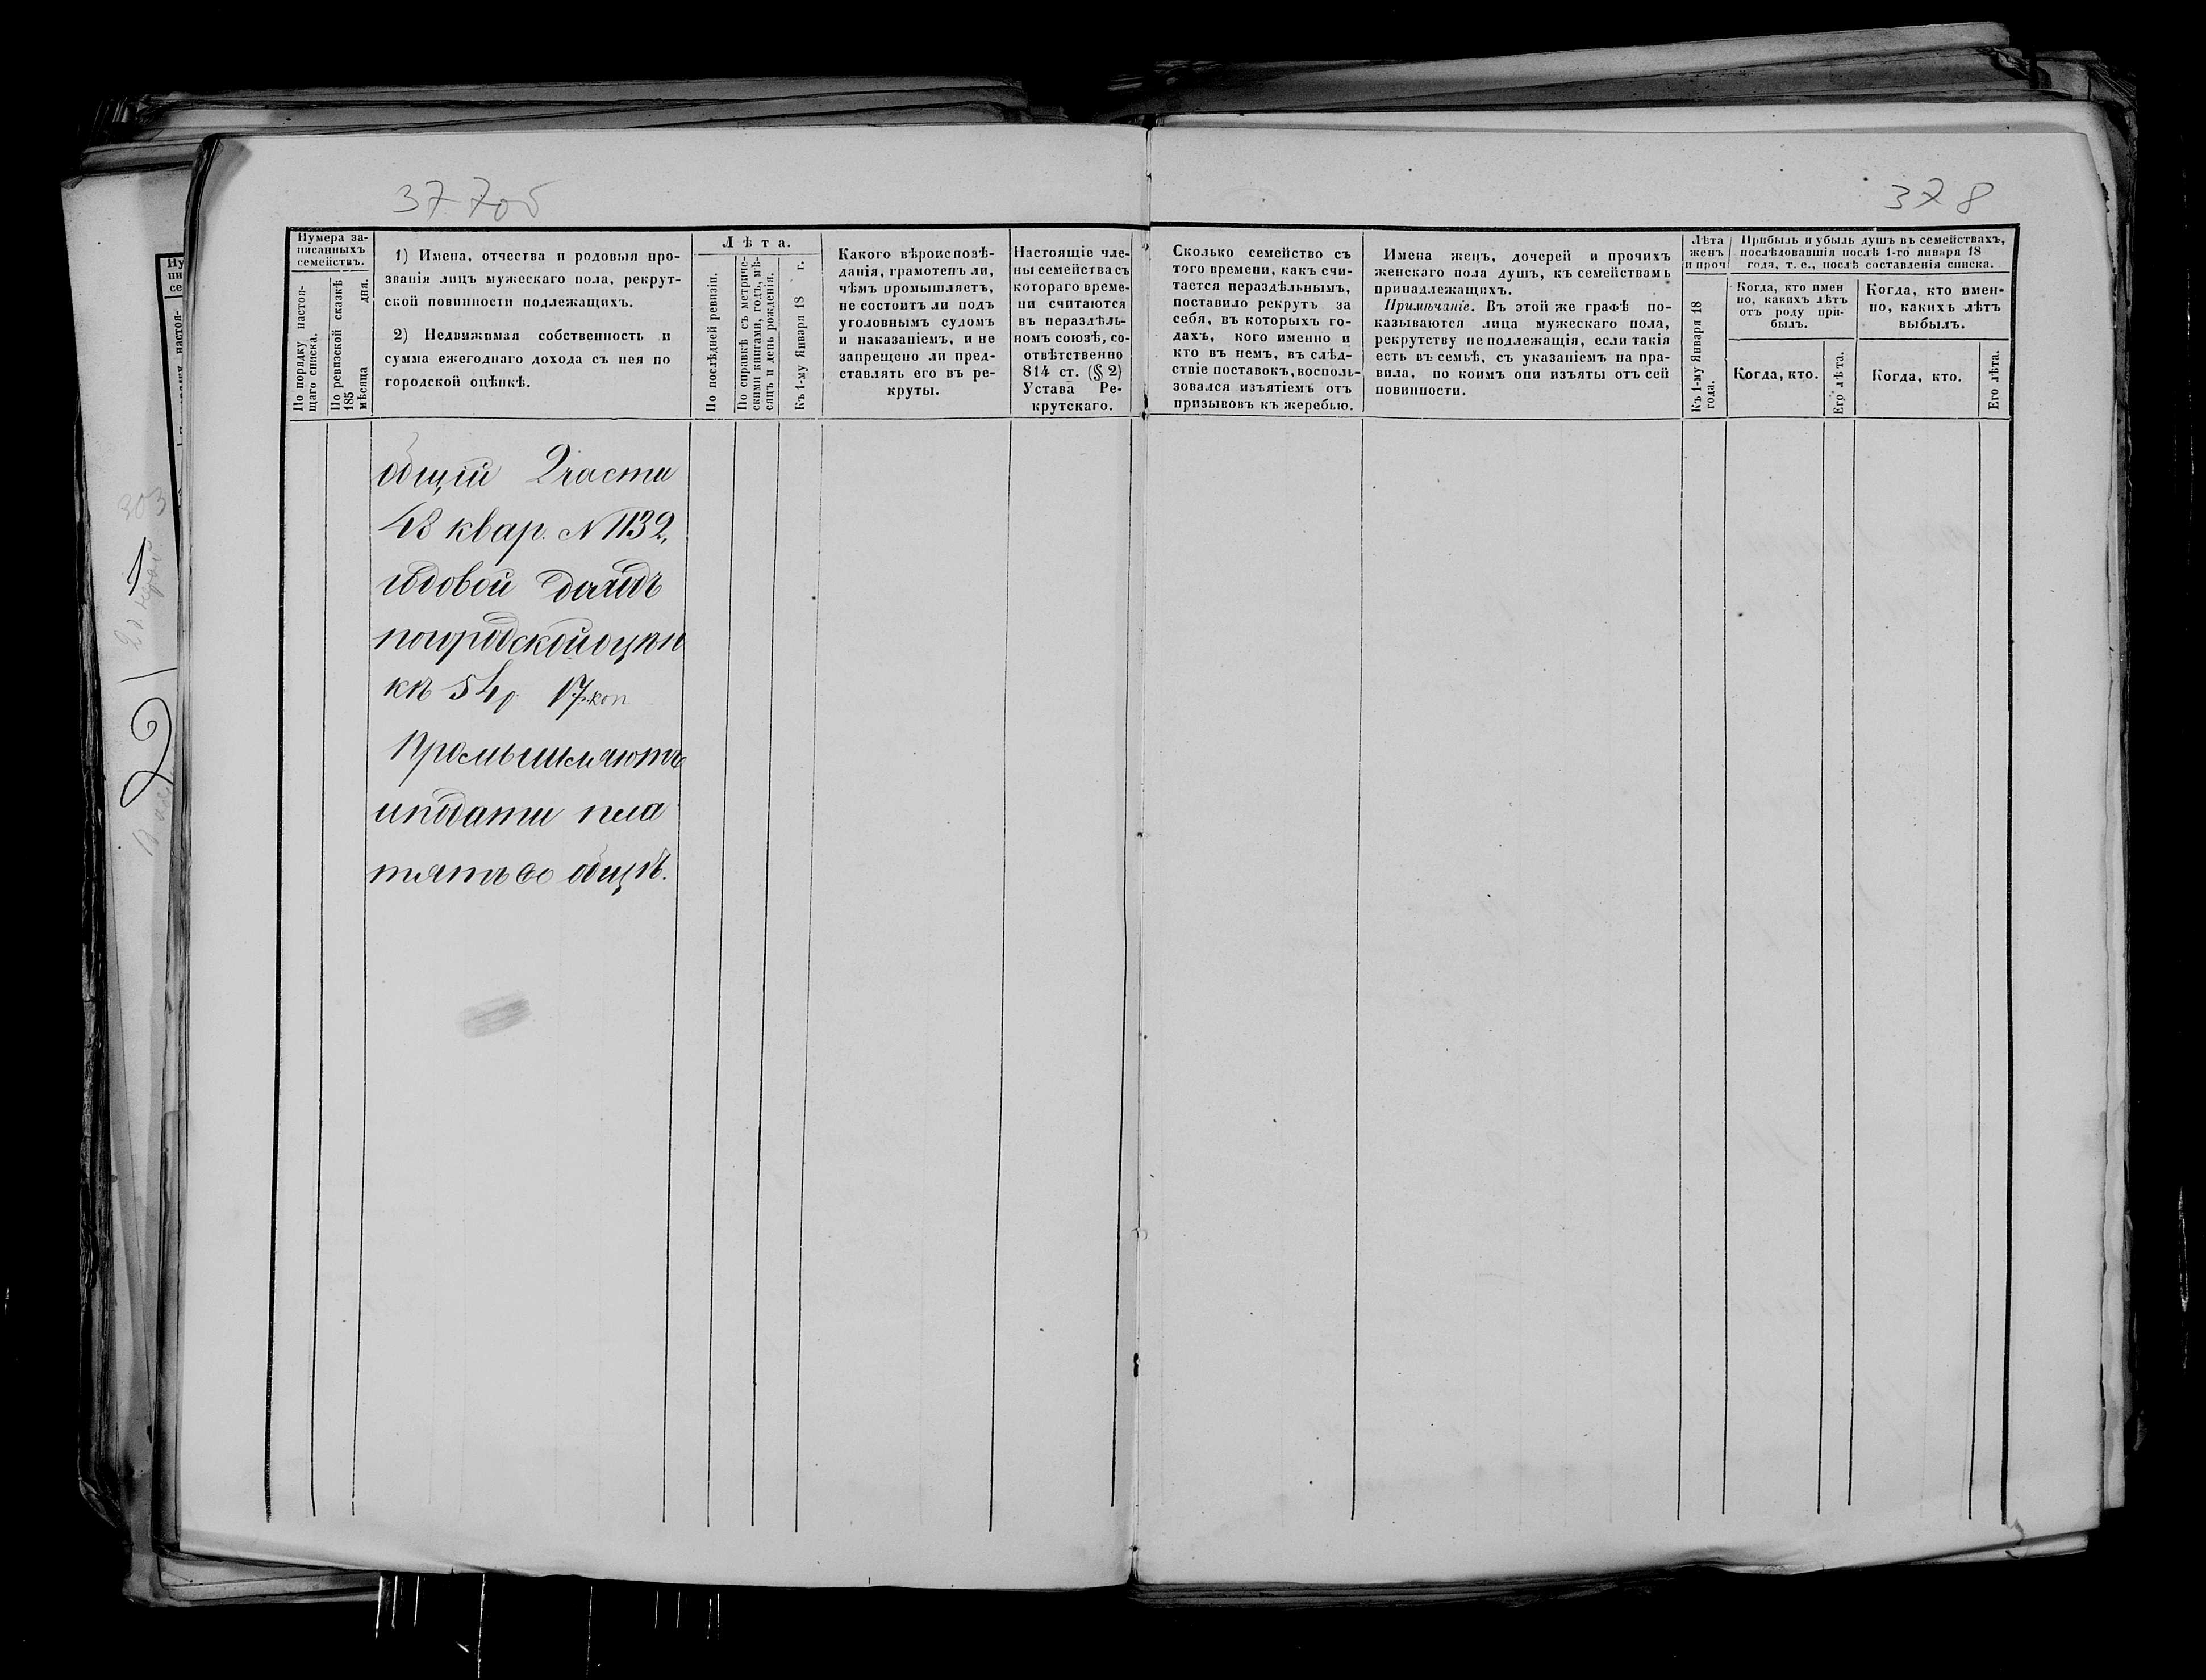 377об
378
Нумера за-
писанныхъ
семействъ.
По порядку настоя-
щаго списка.
По ревизской сказкѣ
185 дня.
мѣсяца
1) Имена, отчества и родовыя про-
званія лицъ мужескаго пола, рекрут-
ской повинности подлежащихъ.
2) Недвижимая собственность и
сумма ежегоднаго дохода съ нея по
городской оцѣнкѣ.
Лѣта.
По послѣдней ревизіи.
По справкѣ съ метриче-
скими книгами, годъ, мѣ-
сяцъ и день рожденія.
Къ 1-му Января 18 г.
Какого вѣроисповѣ-
данія, грамотенъ ли,
чѣмъ промышляетъ,
не состоитъ ли подъ
уголовнымъ судомъ
и наказаніемъ, и не
запрещено ли пред-
ставлять его въ ре-
круты.
Настоящіе чле-
ны семейства съ
котораго време-
ни считаются
въ нераздѣль-
номъ союзѣ, со-
отвѣтственно
814 ст. (§ 2)
Устава Ре-
крутскаго.
Сколько семейство съ
того времени, какъ счи-
тается нераздѣльнымъ,
поставило рекрутъ за
себя, въ которыхъ го-
дахъ, кого именно и
кто въ немъ, въ слѣд-
ствіе поставокъ, восполь-
зовался изъятіемъ отъ
призывовъ къ жеребью.
Имена женъ, дочерей и прочихъ
женскаго пола душъ, къ семействамъ
принадлежащихъ.
Примѣчаніе. Въ этой же графѣ по-
казываются лица мужескаго пола,
рекрутству не подлежащія, если такія
есть въ семьѣ, съ указаніемъ на пра-
вила, по коимъ они изъяты отъ сей
повинности.
Лѣта
женъ
и проч
Къ 1-му Января 18
года.
Прибыль и убыль душъ въ семействахъ,
послѣдовавшія послѣ 1-го января 18
года, т. е., послѣ составленія списка.
Когда, кто имен
но, какихъ лѣтъ
отъ роду при-
былъ.
Когда, кто.
Его лѣта.
Когда, кто имен-
но, какихъ лѣтъ
выбылъ.
Когда, кто.
Его лѣта.
общій 2 части
48 квар. N 1132,
годовой доходъ
погородской оцѣн
кѣ 54 р. 17 коп
Промышляютъ
иподати пла
тятъ во общѣ.